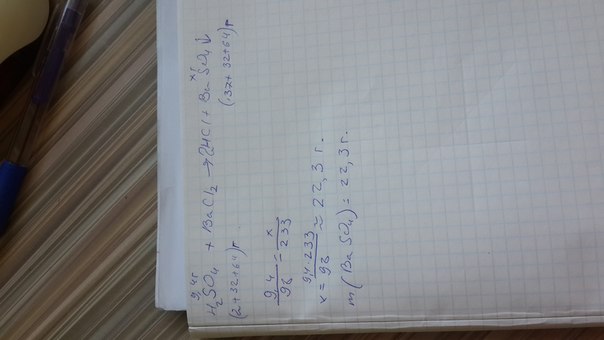 9,4г x
H₂SO₄ + BaCl₂ → 2HCl + BaSO₄↓
(2+32+64)г (137+32+64)г
9,4/98 = x/233
x = 9,4·233/98 ≈ 22,3 г.
m(BaSO₄) = 22,3 г.